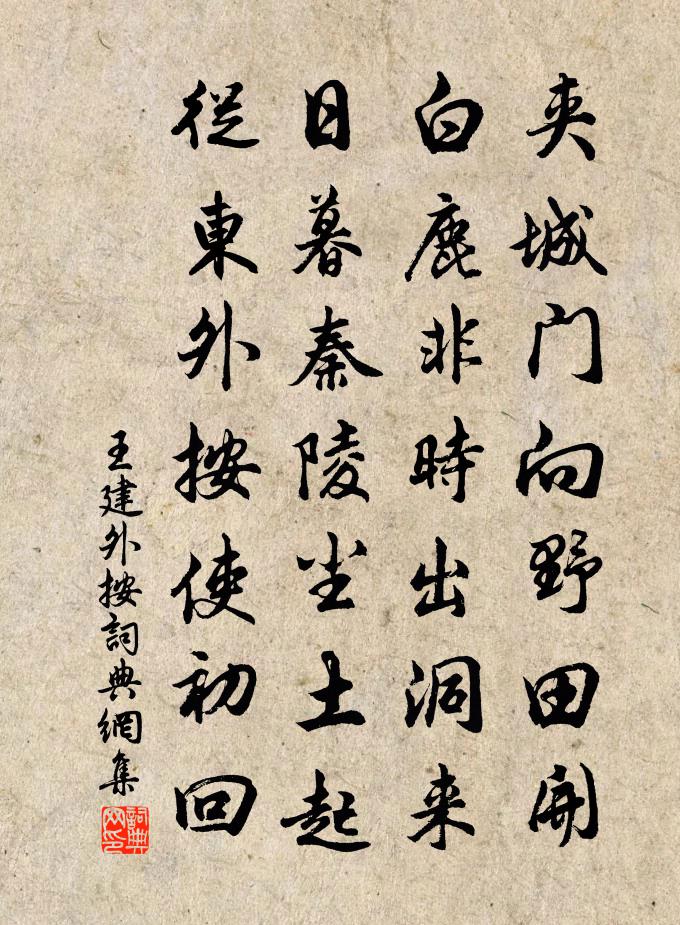 夹城门向野田開
白鹿非時出洞来
日暮秦陵尘土起
從東外按使初回
王建外按詞典網集
詞典网印